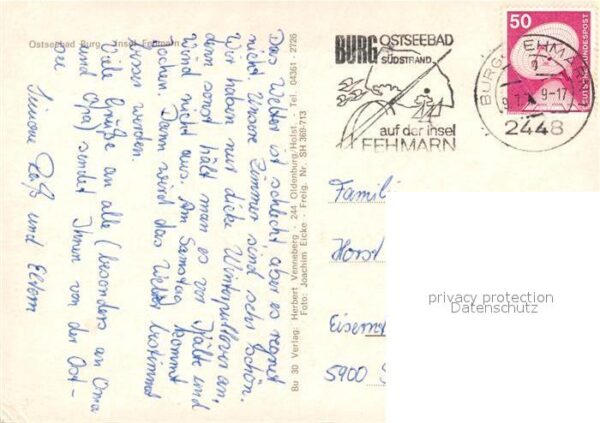 Ostseebad Burg - Insel Fehmarn
Das Wetter ist schlecht, aber es regnet
nicht. Unsere Zimmer sind sehr schön.
Wir haben nur dicke Winterpullover an,
denn sonst hält man es vor Kälte und
Wind nicht aus. Am Samstag kommt
Jochen. Dann wird das Wetter bestimmt
besser werden.
Viele Grüße an alle (besonders an Oma
und Opa) sendet Ihnen von der Ost-
see
Simone Ralf und Eltern
Bu 30 Verlag: Herbert Venneberg · 244 Oldenburg/Holst. · Tel. 04361 - 2726
Foto: Joachim Eicke · Freig. Nr. SH 369-713
BURG OSTSEEBAD
SÜDSTRAND
auf der insel
FEHMARN
BURG FEHMARN
9-17
2448
50
DEUTSCHE BUNDESPOST
Famili
Horst
Eisen
5900
privacy protection
Datenschutz